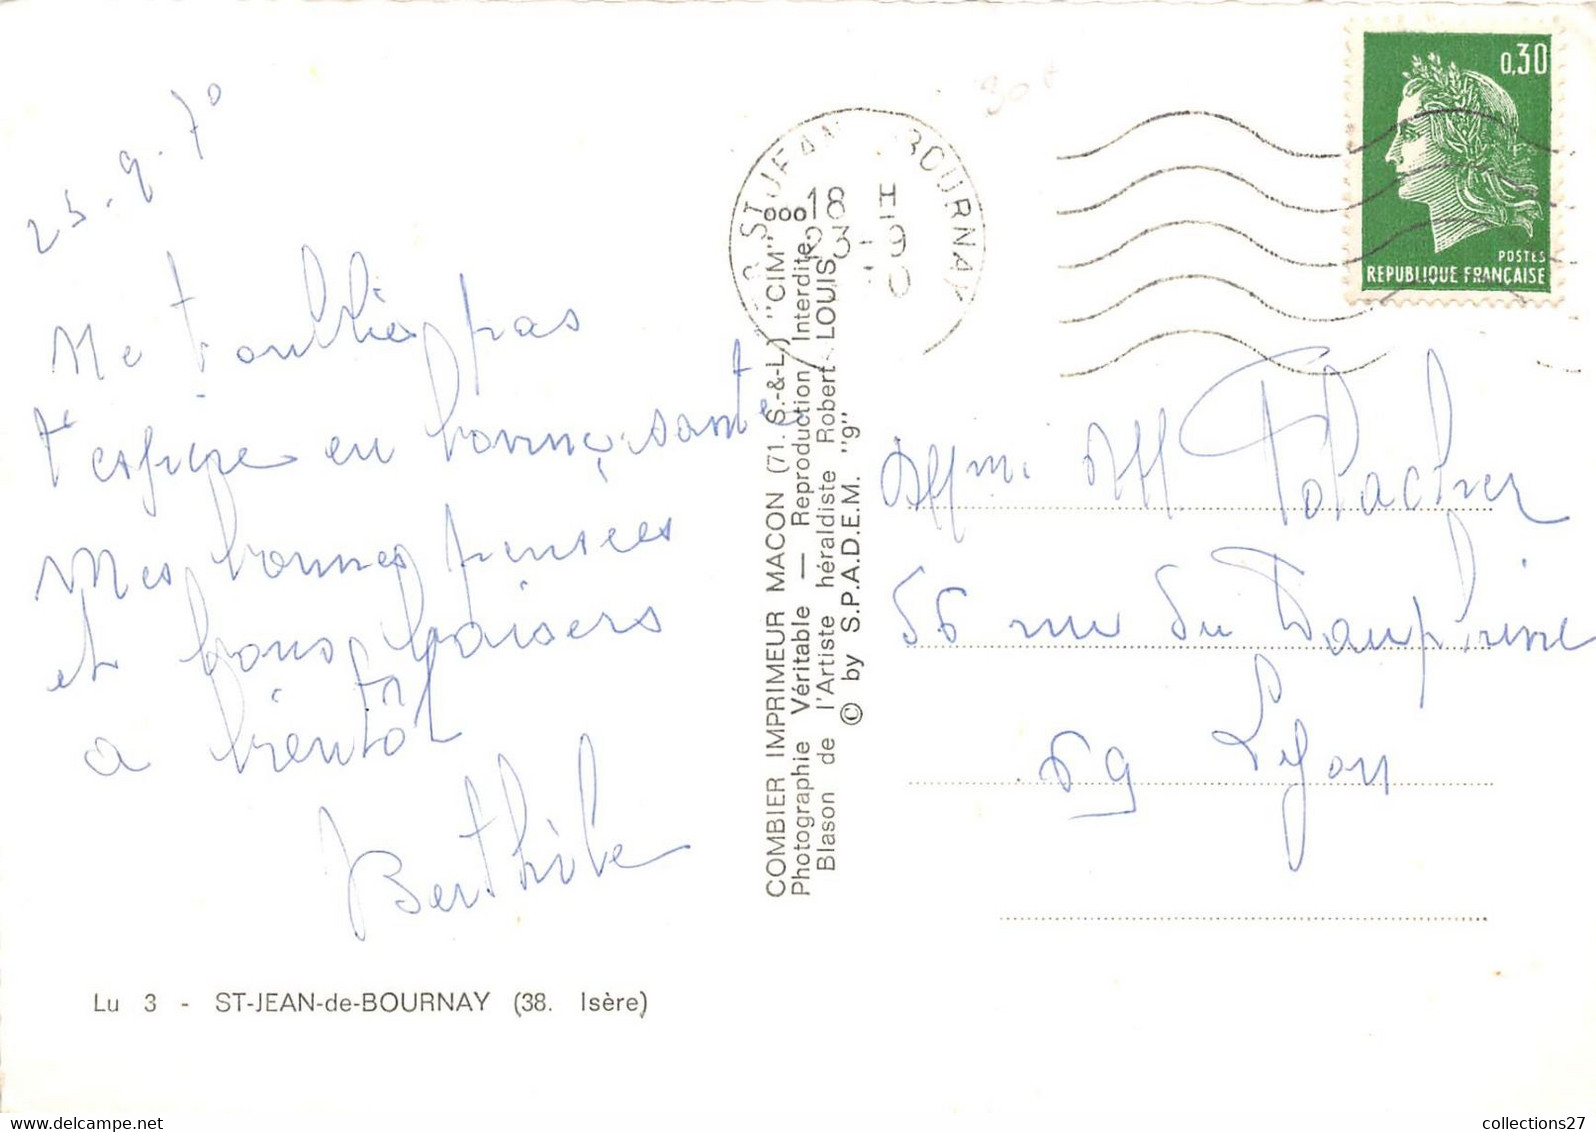 23-9-70
Ne t'oublie pas
t'espère en bonne santé
Mes bonnes pensées
et bons baisers
a bientôt
Berthile
Lu 3 - ST-JEAN-de-BOURNAY (38. Isère)
COMBIER IMPRIMEUR MACON (71. S.-&-L.) "CIM"
Photographie Véritable — Reproduction Interdite
Blason de l'Artiste héraldiste Robert LOUIS
© by S.P.A.D.E.M. "9"
ST JEAN BOURNAY
18 H
23-9
0,30
POSTES
REPUBLIQUE FRANÇAISE
30 F
Polacher
56 rue du Dauphiné
69 Lyon
collections27